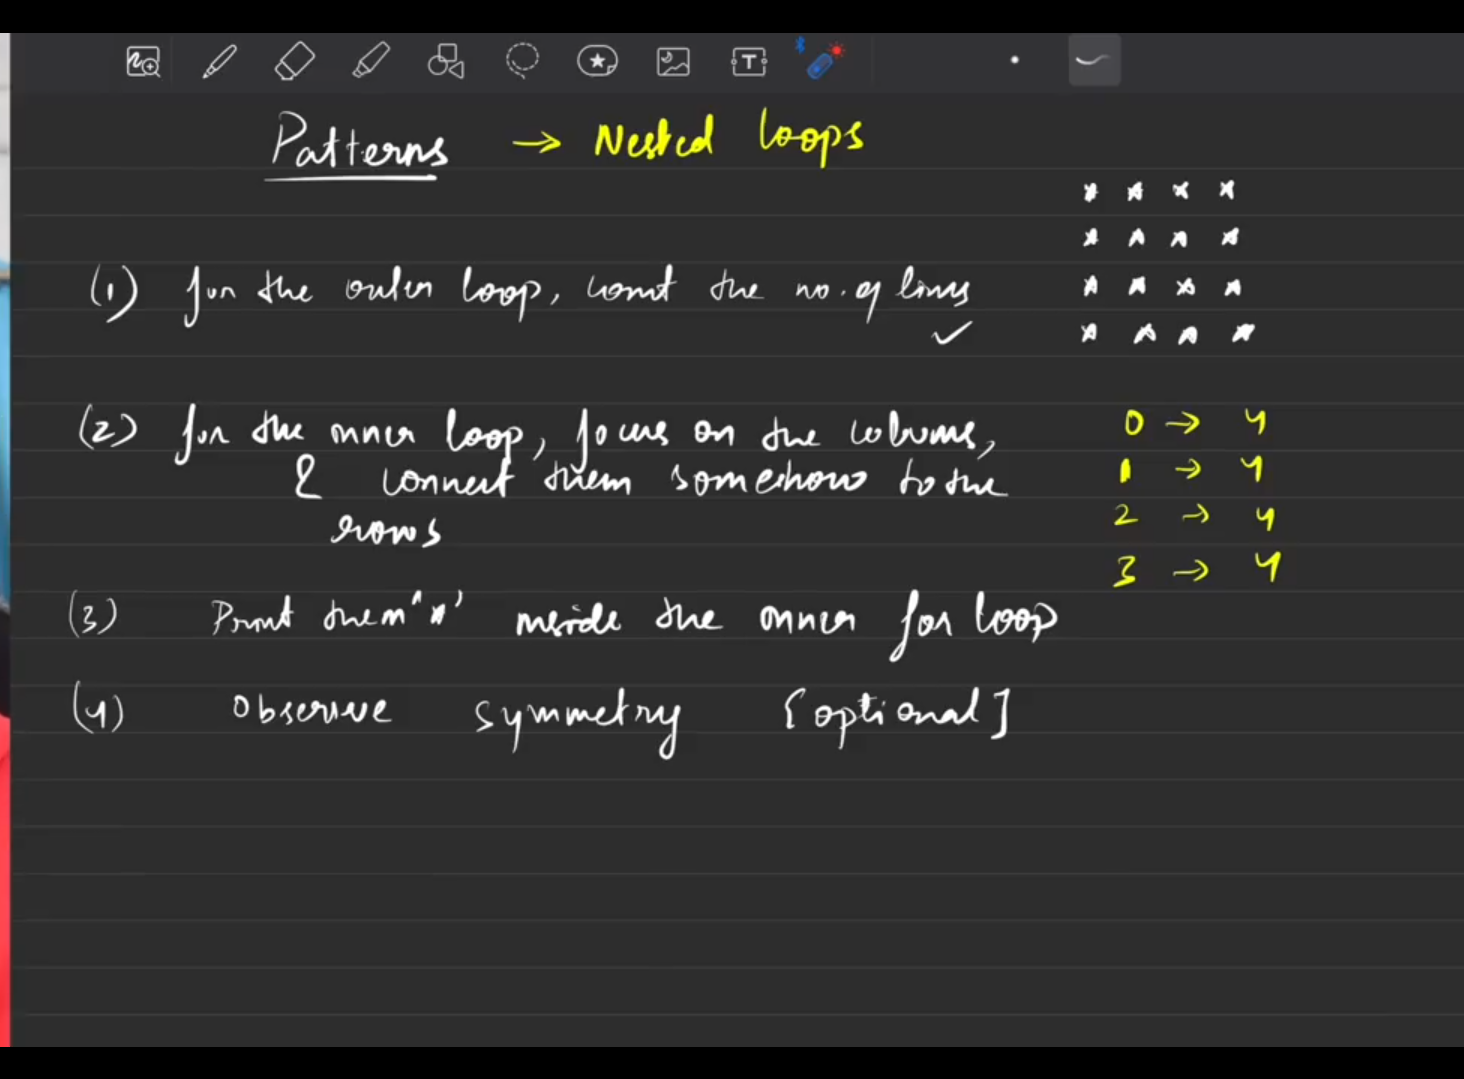 Patterns → Nested loops
* * * *
* * * *
(1) for the outer loop, count the no. of lines
* * * *
* * * *
(2) for the inner loop, focus on the columns,
& connect them somehow to the
rows
0 → 4
1 → 4
2 → 4
3 → 4
(3) Print them '*' inside the inner for loop
(4) Observe symmetry [optional]